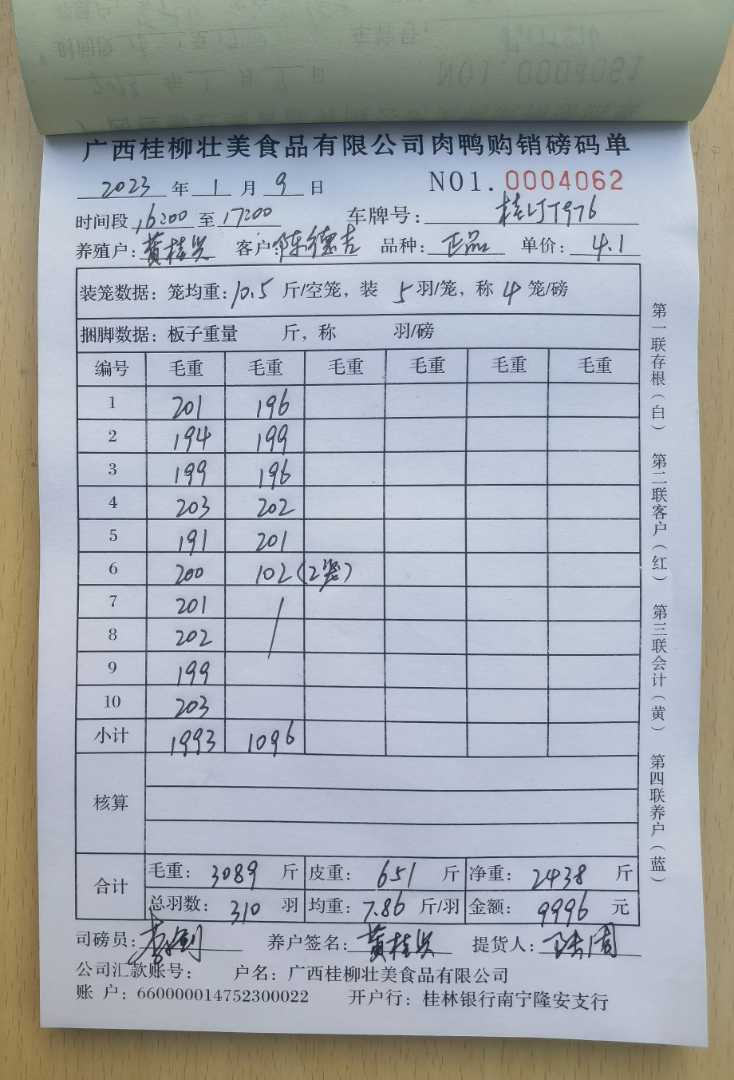 广西桂柳壮美食品有限公司肉鸭购销磅码单
2023 年 1 月 9 日 NO1.0004062
时间段 16:00 至 17:00 车牌号: 桂 T976
养殖户: 黄桂兴 客户: 陈德吉 品种: 正品 单价: 4.1
装笼数据: 笼均重: 10.5 斤/空笼, 装 5 羽/笼, 称 4 笼/磅
捆脚数据: 板子重量 斤, 称 羽/磅
编号 毛重 毛重 毛重 毛重 毛重 毛重
1 201 196
2 194 199
3 199 196
4 203 202
5 191 201
6 200 102(2笼)
7 201 /
8 202
9 199
10 203
小计 1993 1096
核算
合计 毛重: 3089 斤 皮重: 651 斤 净重: 2438 斤
总羽数: 310 羽 均重: 7.86 斤/羽 金额: 9996 元
司磅员: 养户签名: 黄桂兴 提货人:
公司汇款账号: 户名: 广西桂柳壮美食品有限公司
账 户: 660000014752300022 开户行: 桂林银行南宁隆安支行
第一联存根(白) 第二联客户(红) 第三联会计(黄) 第四联养户(蓝)